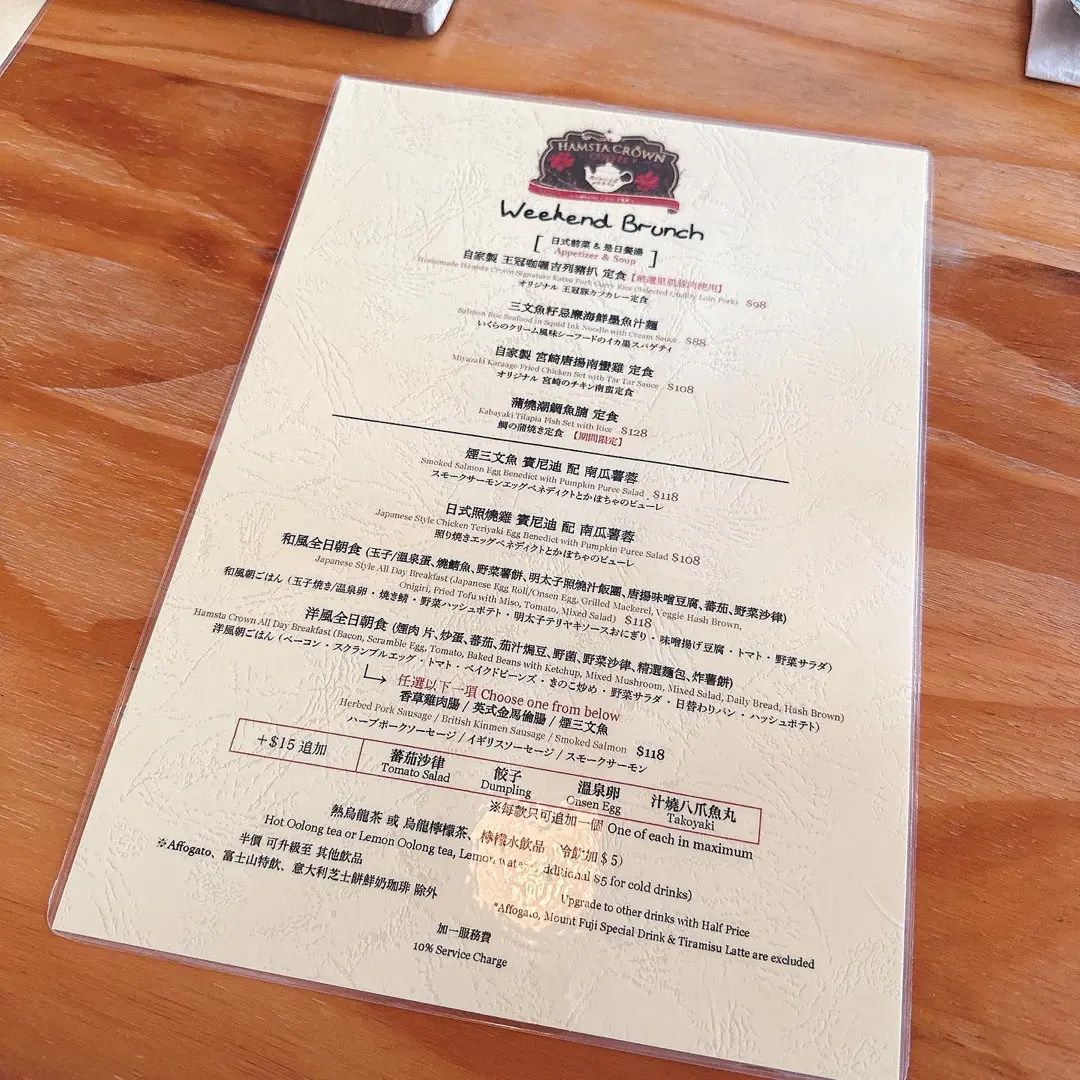 HAMSTA CROWN
COFFEE
Weekend Brunch
[ 日式前菜 & 是日餐湯 ]
Appetizer & Soup
自家製 王冠咖喱吉列豬扒 定食【嚴選里肌豚肉使用】
Homemade Hamsta Crown Signature Katsu Pork Curry Rice (Selected Quality Loin Pork) $98
オリジナル 王冠豚カツカレー定食
三文魚籽忌廉海鮮墨魚汁麵
Salmon Roe Seafood in Squid Ink Noodle with Cream Sauce $88
いくらのクリーム風味シーフードのイカ墨スパゲティ
自家製 宮崎唐揚南蠻雞 定食
Miyazaki Karaage Fried Chicken Set with Tar Tar Sauce $108
オリジナル 宮崎のチキン南蛮定食
蒲燒潮鯛魚腩 定食
Kabayaki Tilapia Fish Set with Rice $128
鯛の蒲焼き定食 【期間限定】
煙三文魚 賓尼迪 配 南瓜薯蓉
Smoked Salmon Egg Benedict with Pumpkin Puree Salad . $118
スモークサーモンエッグベネディクトとかぼちゃのピューレ
日式照燒雞 賓尼迪 配 南瓜薯蓉
Japanese Style Chicken Teriyaki Egg Benedict with Pumpkin Puree Salad $108
照り焼きエッグベネディクトとかぼちゃのピューレ
和風全日朝食 (玉子/溫泉蛋、燒鯖魚、野菜薯餅、明太子照燒汁飯團、唐揚味噌豆腐、蕃茄、野菜沙律)
Japanese Style All Day Breakfast (Japanese Egg Roll/Onsen Egg, Grilled Mackerel, Veggie Hash Brown,
Onigiri, Fried Tofu with Miso, Tomato, Mixed Salad) $118
和風朝ごはん (玉子焼き/温泉卵・焼き鯖・野菜ハッシュポテト・明太子テリヤキソースおにぎり・味噌揚げ豆腐・トマト・野菜サラダ)
洋風全日朝食 (煙肉 片、炒蛋、蕃茄、茄汁焗豆、野菌、野菜沙律、精選麵包、炸薯餅)
Hamsta Crown All Day Breakfast (Bacon, Scramble Egg, Tomato, Baked Beans with Ketchup, Mixed Mushroom, Mixed Salad, Daily Bread, Hash Brown)
洋風朝ごはん (ベーコン・スクランブルエッグ・トマト・ベイクドビーンズ・きのこ炒め・野菜サラダ・日替わりパン・ハッシュポテト)
任選以下一項 Choose one from below
香草雞肉腸 / 英式金馬倫腸 / 煙三文魚
Herbed Pork Sausage / British Kinmen Sausage / Smoked Salmon $118
ハーブポークソーセージ / イギリスソーセージ / スモークサーモン
+$15 追加
蕃茄沙律 餃子 溫泉卵 汁燒八爪魚丸
Tomato Salad Dumpling Onsen Egg Takoyaki
※每款只可追加一個 One of each in maximum
熱烏龍茶 或 烏龍檸檬茶、檸檬水飲品 冷飲加 $ 5)
Hot Oolong tea or Lemon Oolong tea, Lemon $5 for cold drinks)
半價 可升級至 其他飲品
Upgrade to other drinks with Half Price
※Affogato、富士山特飲、意大利芝士餅鮮奶咖啡 除外
*Affogato, Mount Fuji Special Drink & Tiramisu Latte are excluded
加一服務費
10% Service Charge